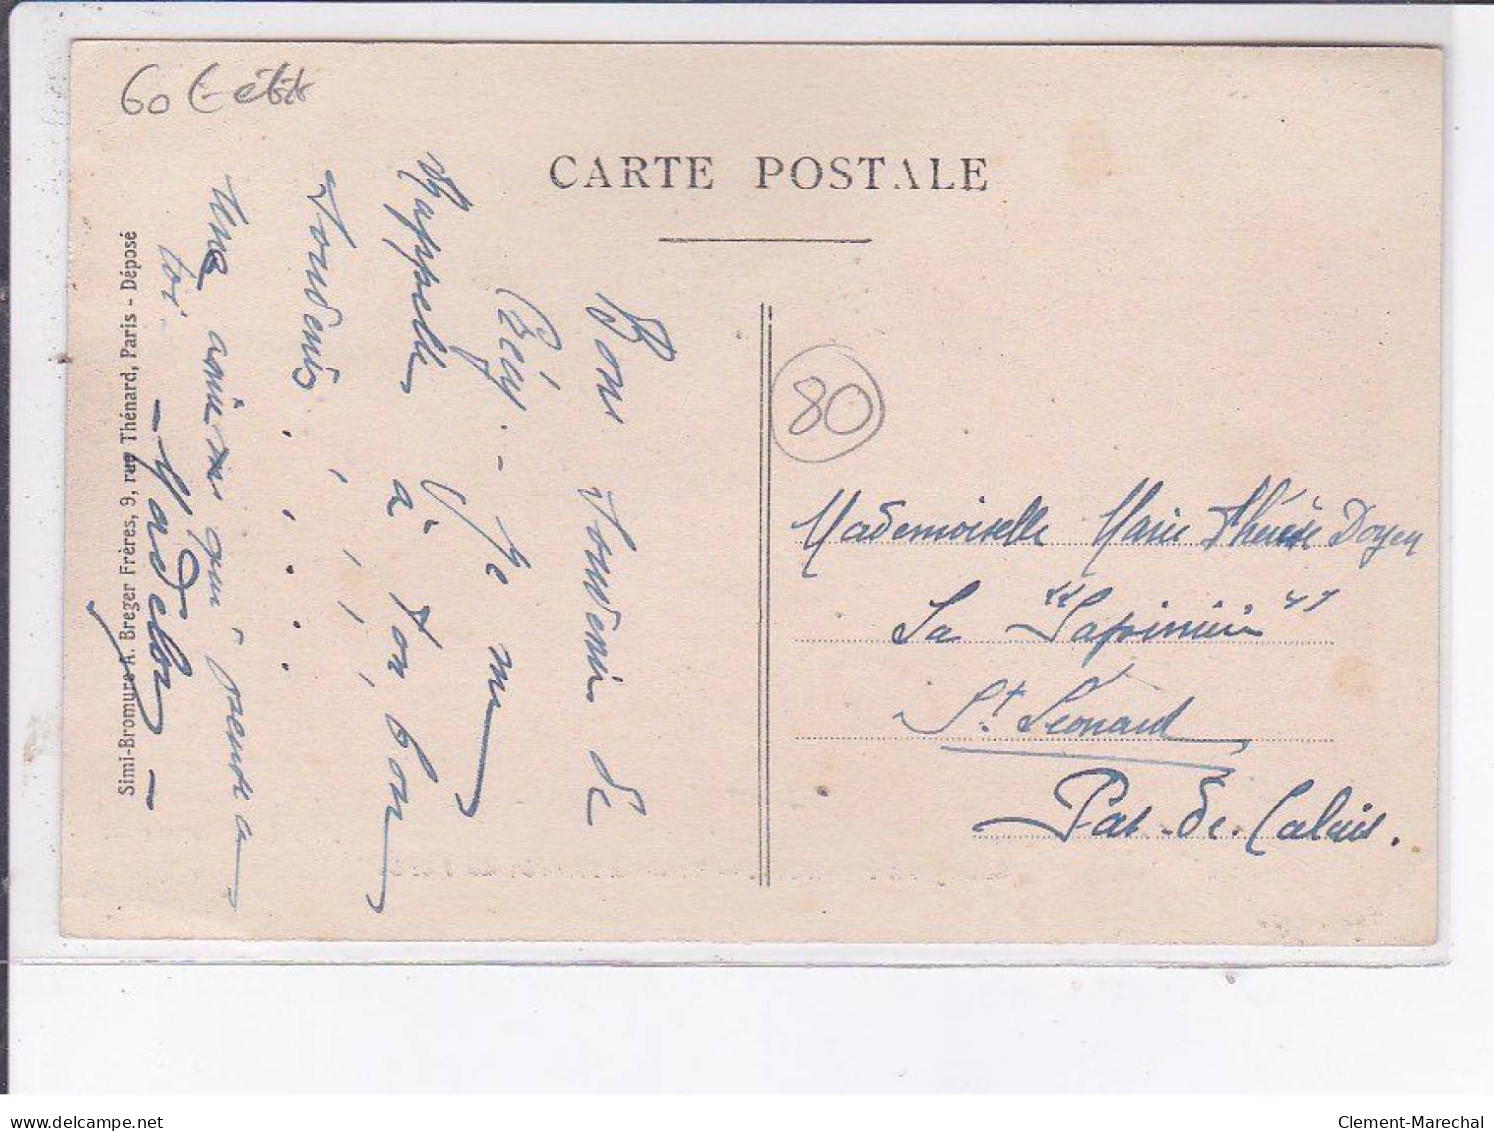 60
CARTE POSTALE
80
Bon souvenir de
Crécy. - Je me
Rappelle à ton bon
souvenir
Une amie qui pense à
toi
- Madelon -
Simi-Bromure A. Breger Frères, 9, rue Thénard, Paris - Déposé
Mademoiselle Marie Thérèse Doyen
La "Sapinière"
St. Léonard
Pas-de-Calais.
delcampe.net
Clement-Marechal